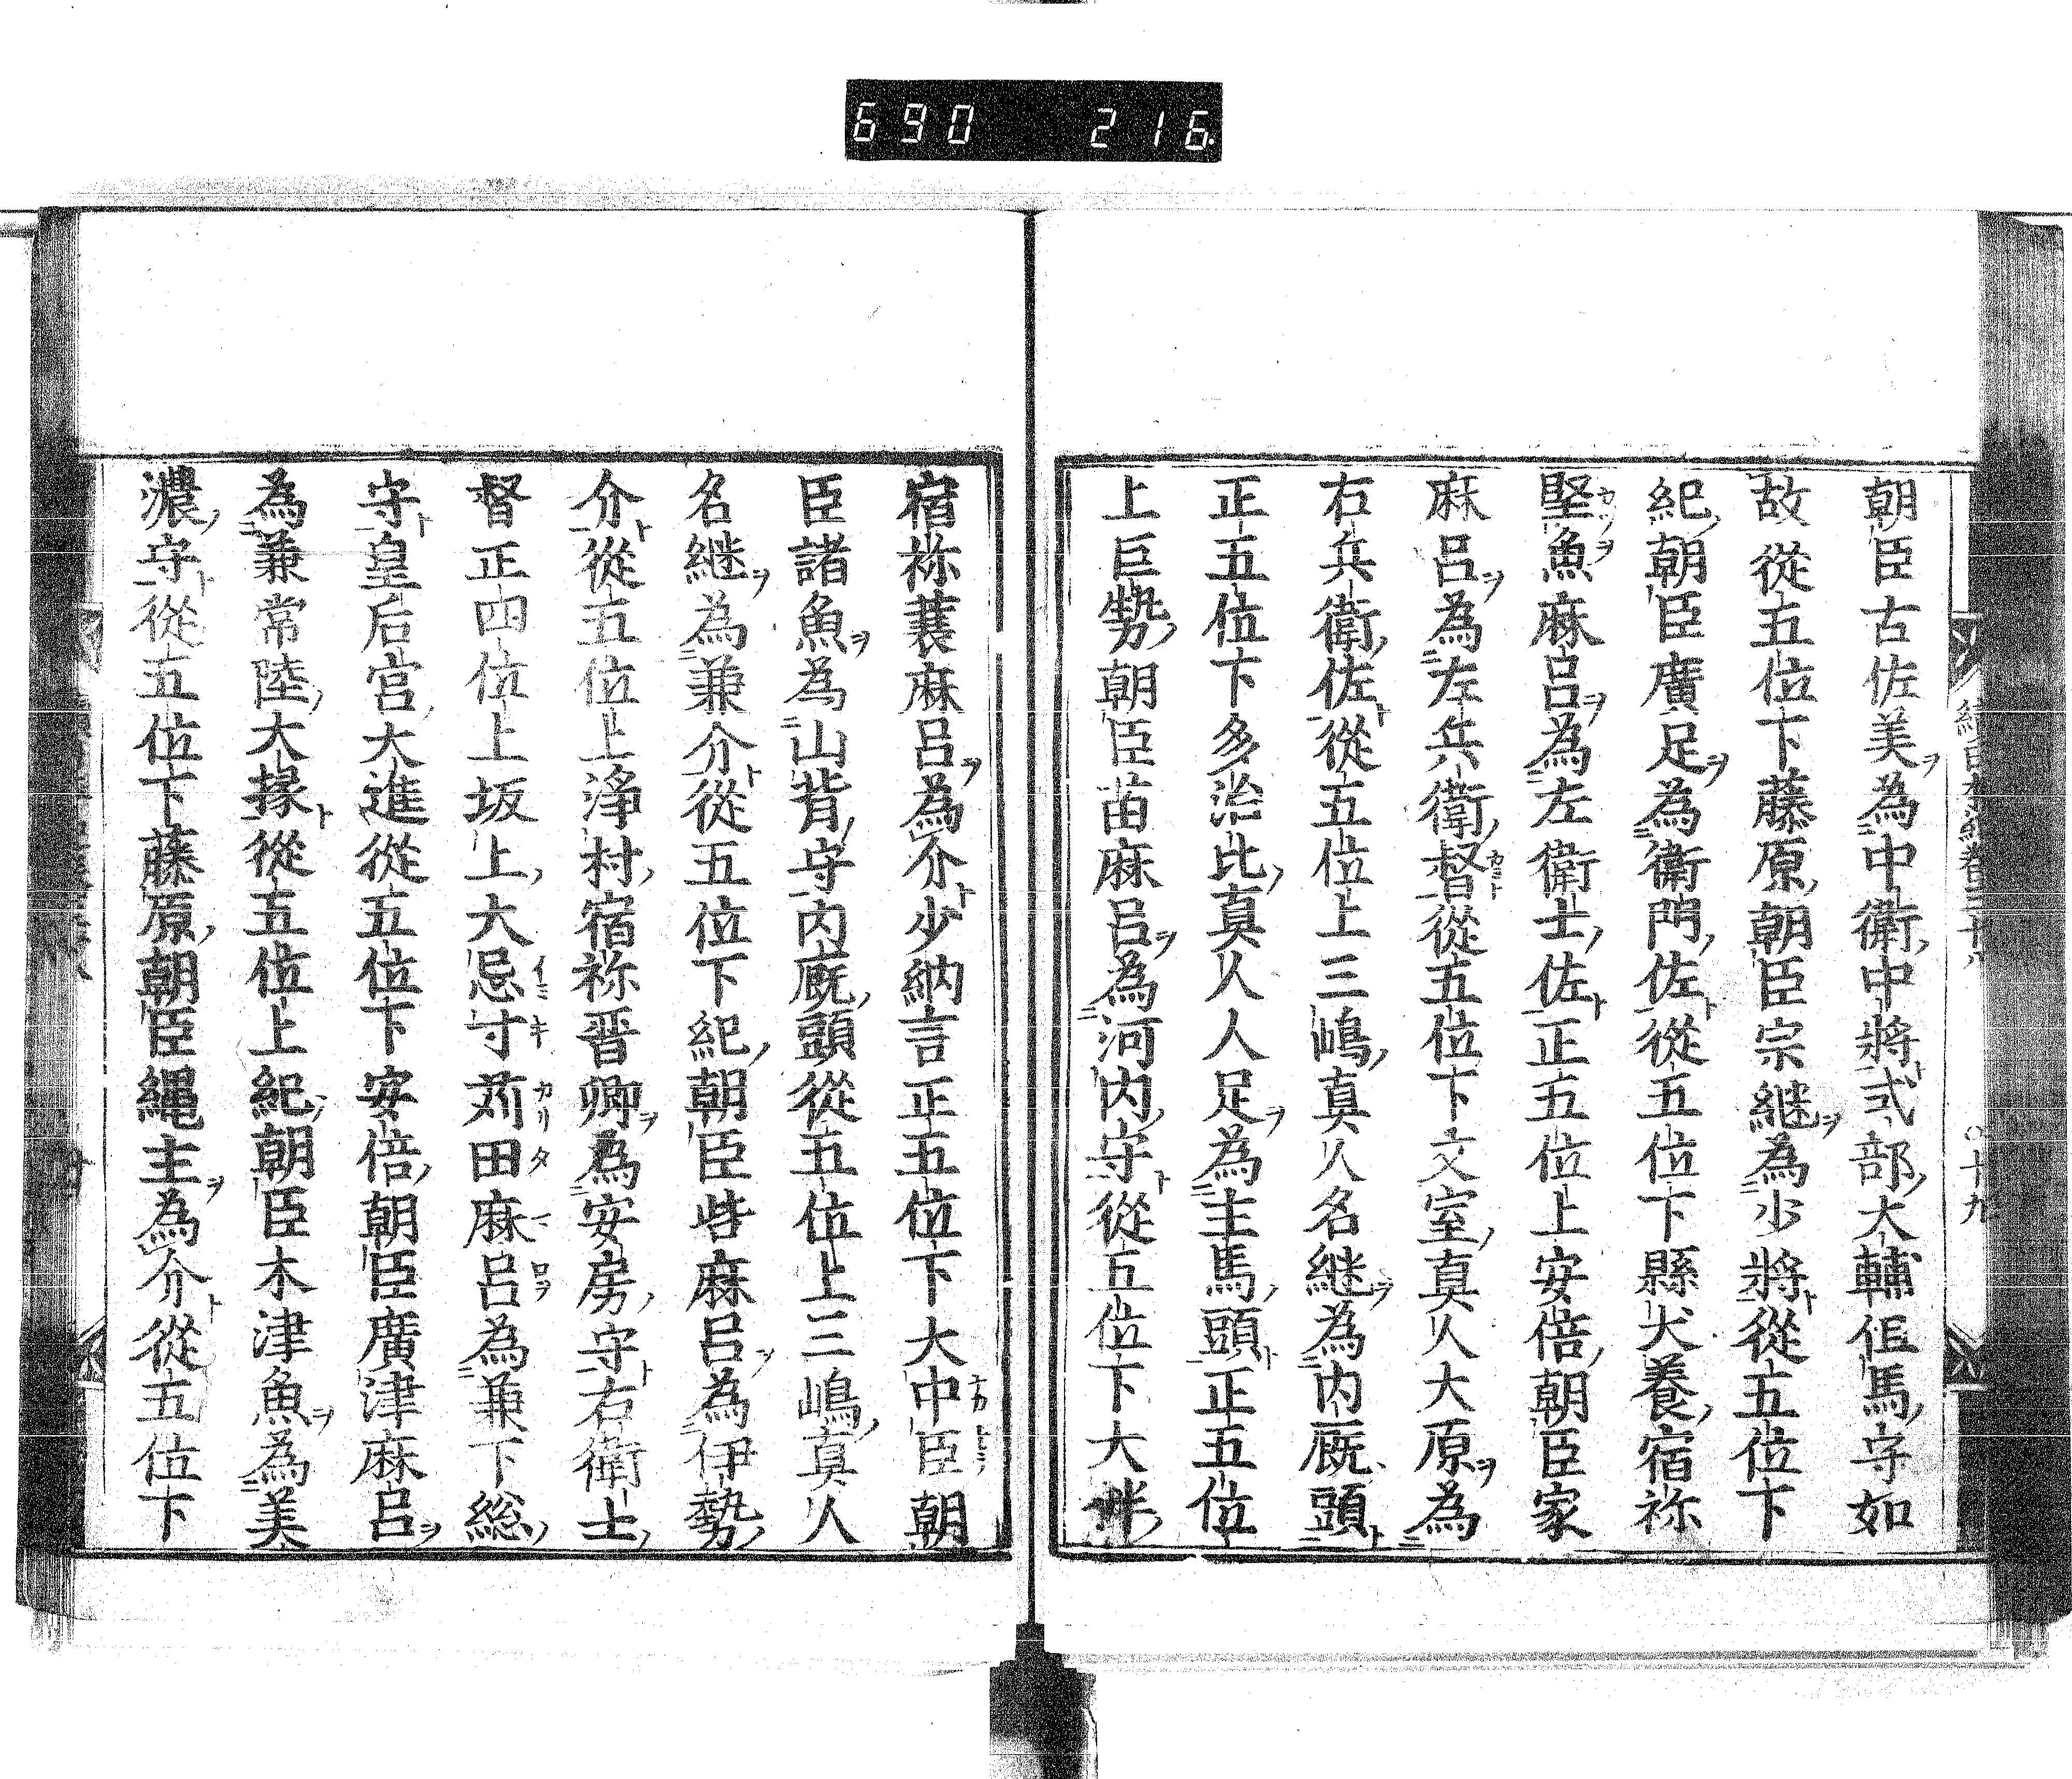 690 216
朝臣古佐美ヲ為ニ中衛中將ト式部大輔但馬守如
故從五位下藤原朝臣宗継ヲ為ニ少將ト從五位下
紀朝臣廣足ヲ為ニ衛門佐ト從五位下縣犬養宿祢
堅魚麻呂ヲ為ニ左衛士佐ト正五位上安倍朝臣家
麻呂ヲ為ニ左兵衛督ト從五位下文室真人大原ヲ為ニ
右兵衛佐ト從五位上三嶋真人名継ヲ為ニ内厩頭ト
正五位下多治比真人人足ヲ為ニ主馬頭ト正五位
上巨勢朝臣苗麻呂ヲ為ニ河内守ト從五位下大伴
宿祢蓑麻呂ヲ為介ト少納言正五位下大中臣朝
臣諸魚ヲ為ニ山背守内厩頭從五位上三嶋真人
名継ヲ為ニ兼介ト從五位下紀朝臣呰麻呂ヲ為ニ伊勢
介ト從五位上浄村宿祢晋卿ヲ為ニ安房守ト右衛士
督正四位上坂上大忌寸苅田麻呂為ニ兼下総
守ト皇后宮大進從五位下安倍朝臣廣津麻呂ヲ
為ニ兼常陸大掾ト從五位上紀朝臣木津魚ヲ為ニ美
濃守ト從五位下藤原朝臣縄主ヲ為ニ介ト從五位下